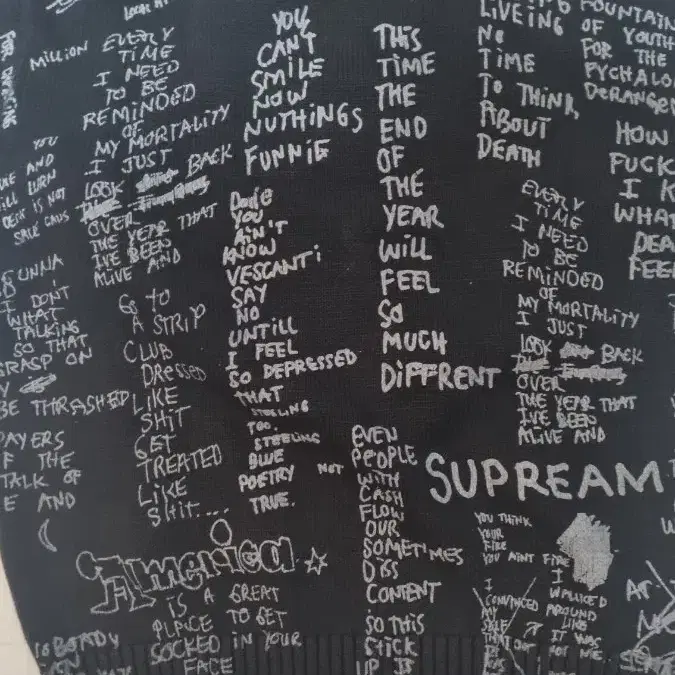 LOOK AT
MILLION
EVERY
TIME
I NEED
TO BE
REMINDED
OF
MY MORTALITY
I JUST
LOOK BACK
OVER
THE YEAR THAT
I'VE BEEN
ALIVE AND
GO TO
A STRIP
CLUB
DRESSED
LIKE
SHIT
GET
TREATED
LIKE
SHIT...
YOU
AND
IS NOT
GUNNA
I DON'T
WHAT
TALKING
SO THAT
GRASP ON
BE THRASHED
PAYERS
F THE
TALK OF
E AND
YOU
CAN'T
SMILE
NOW
NUTHINGS
FUNNIE
YOU
AIN'T
KNOW
SAY
NO
UNTILL
I FEEL
SO DEPRESSED
THAT
TOO.
BLUE
POETRY NOT
TRUE.
THIS
TIME
THE
END
OF
THE
YEAR
WILL
FEEL
SO
MUCH
DIFFRENT
EVEN
PEOPLE
WITH
CASH
FLOW
OUR
SOMETIMES
DISS
CONTENT
SO THIS
STICK
UP IS
LIVEING
NO
TIME
TO THINK
ABOUT
DEATH
EVERY
TIME
I NEED
TO BE
REMINDED
OF
MY MORTALITY
I JUST
LOOK BACK
OVER
THE YEAR THAT
I'VE BEEN
ALIVE AND
FOUNTAIN
OF YOUTH
FOR THE
PYCHALO
DERANGE
HOW
FUCK
I K
WHAT
DEA
FEEL
SUPREAM
YOU THINK
YOUR
FIRE
YOU AINT FIRE
I
CONVINCED
MY
SELF
THAT
I
WALKED
AROUND
LIKE
IT WAS
NOT ME
America
IS A GREAT
PLACE TO GET
SOCKED IN YOUR
FACE